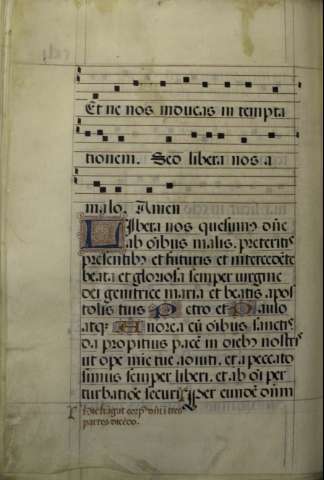 Et ne nos inducas in tempta
tionem. Sed libera nos a
malo. Amen
Libera nos quesumꝰ dn̄e
ab oībus malis. preteritꝭ
presentibꝰ et futuris et intercedēte
beata et gloriosa semper uirgine
dei genitrice maria et beatis apos
tolis tuis Petro et Paulo
atqꝫ Andrea cū oībus sanctꝭ
da propitius pacē in diebꝰ nostrꝭ
ut ope mīe tue adiuti. et a peccato
simus semper liberi. et ab oī per
turbatiōe securi. Per eundē dnm̄
Hic frāgat corpꝰ dn̄i ī tres
partes dicēdo.